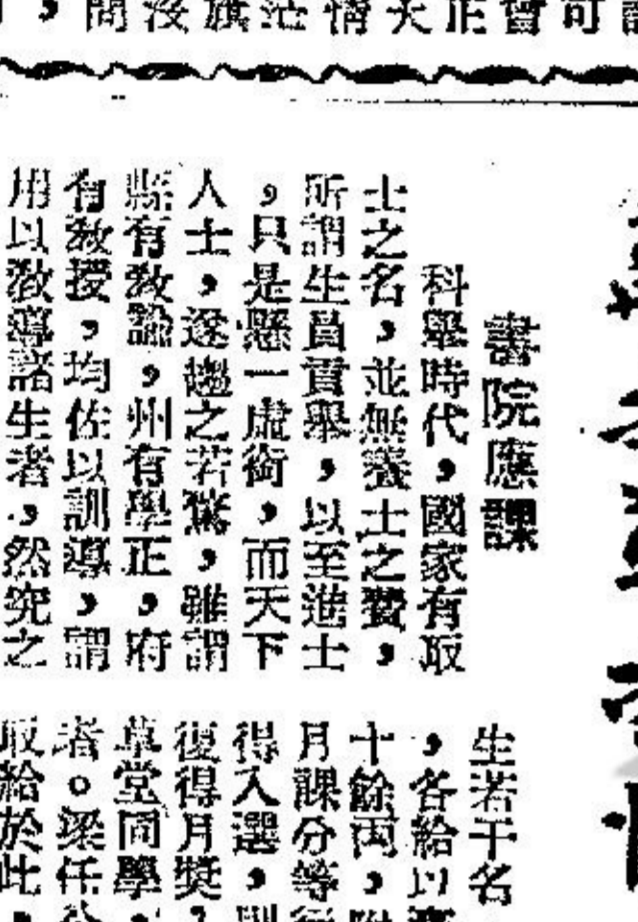 問沒旗茫情天正會可
書院應課
科舉時代，國家有取
士之名，並無養士之費，
所謂生員貢舉，以至進士
，只是懸一虛銜，而天下
人士，遂趨之若鶩，雖謂
縣有敎諭，州有學正，府
有敎授，均佐以訓導，謂
用以敎導諸生者，然究之
生若干名
，各給以
十餘丙，附
月課分等
得入選，則
復得月獎，
草堂同學
者。梁任公
取給於此，